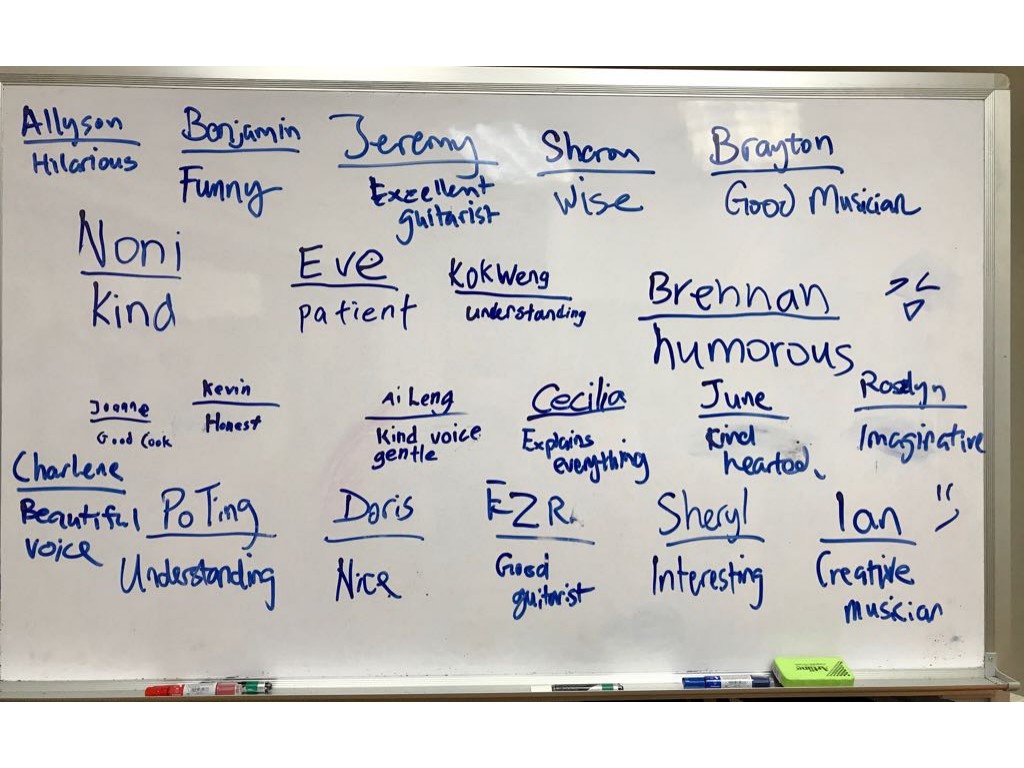 Allyson
Hilarious
Benjamin
Funny
Jeremy
Excellent
guitarist
Sharon
Wise
Brayton
Good Musician
Noni
Kind
Eve
patient
Kok Weng
understanding
Brennan
humorous
Joanne
Good Cook
Kevin
Honest
Ai Leng
Kind voice
gentle
Cecilia
Explains
everything
June
Kind
hearted
Roselyn
Imaginative
Charlene
Beautiful
voice
Po Ting
Understanding
Doris
Nice
EZR
Good
guitarist
Sheryl
Interesting
Ian
Creative
musician
Artline